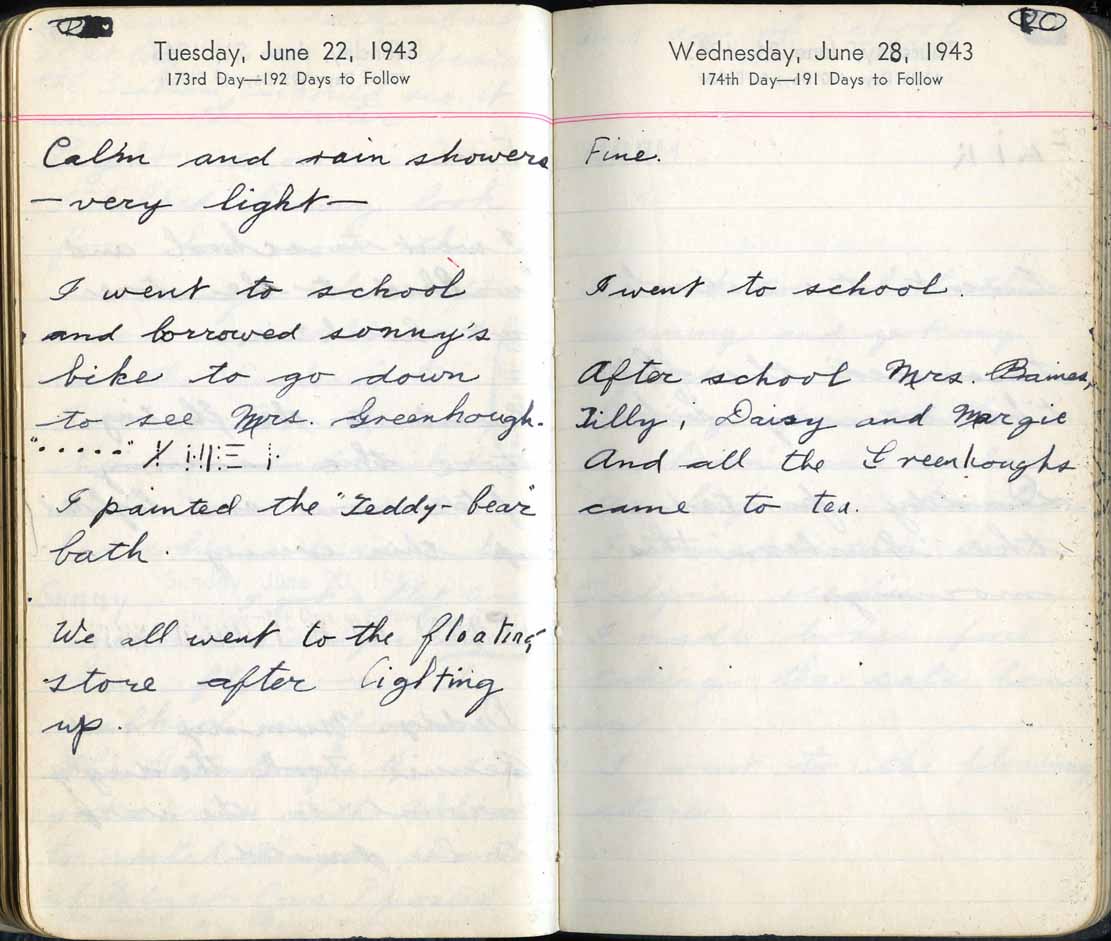 Tuesday, June 22, 1943
173rd Day—192 Days to Follow
Calm and rain showers
— very light —
I went to school
and borrowed sonny's
bike to go down
to see Mrs. Greenhough.
I painted the "Teddy-bear"
bath.
We all went to the floating
store after lighting
up.
Wednesday, June 28, 1943
174th Day—191 Days to Follow
Fine.
I went to school.
After school Mrs. Baines,
Tilly, Daisy and Margie
And all the Greenhoughs
came to tea.